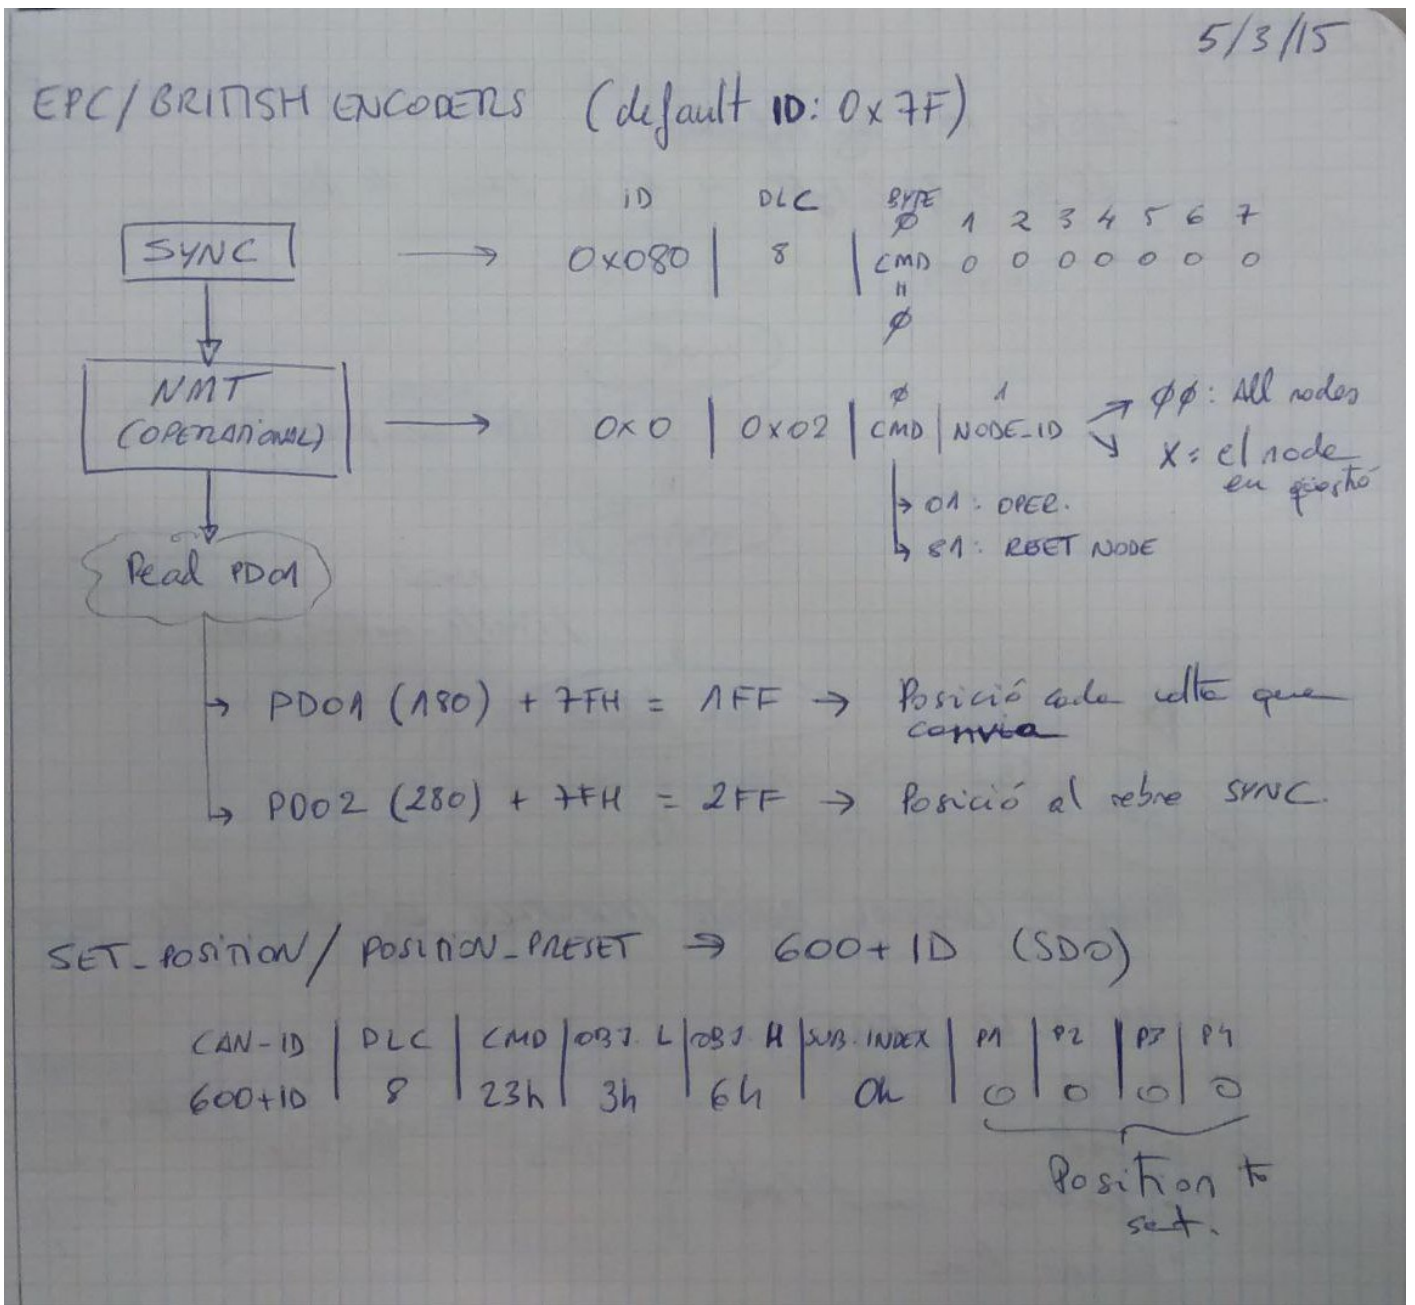 5/3/15
EPC/BRITISH ENCODERS (default ID: 0x7F)
ID DLC BYTE
Ø 1 2 3 4 5 6 7
SYNC → 0x080 | 8 | CMD 0 0 0 0 0 0 0
=
Ø
NMT
(OPERATIONAL) → 0x0 | 0x02 | CMD | NODE_ID
Ø 1
ØØ: All nodes
X = el node
en qüestió
01: OPER.
81: RESET NODE
Read PDO1
PDO1 (180) + 7FH = 1FF → Posició cada volta que
canvia
PDO2 (280) + 7FH = 2FF → Posició al rebre SYNC.
SET_POSITION/POSITION_PRESET → 600+ID (SDO)
CAN-ID | DLC | CMD | OBJ. L | OBJ. H | SUB. INDEX | P1 | P2 | P3 | P4
600+ID | 8 | 23h | 3h | 6h | 0h | 0 | 0 | 0 | 0
Position to
set.